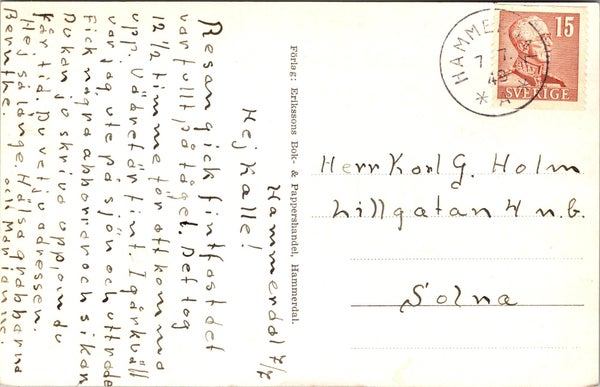 Hammerdal 7/7
Hej Kalle!
Resan gick fint fast det
var fullt på tåget. Det tog
12 1/2 timme för att komma
upp. Vädret är fint. I går kväll
var jag ute på sjön och
fick några abborrar och sikar.
Du kan ju skriva upp, om du
får tid. Du vet ju adressen.
Hej så länge. Hälsa grabbarna
Bernthe. och Marianne.
Förlag: Erikssons Bok- & Pappershandel, Hammerdal.
HAMMERDAL
7.7.
48
* A
15
SVERIGE
Herr Karl G. Holm
Lillgatan 4 n.b.
Solna